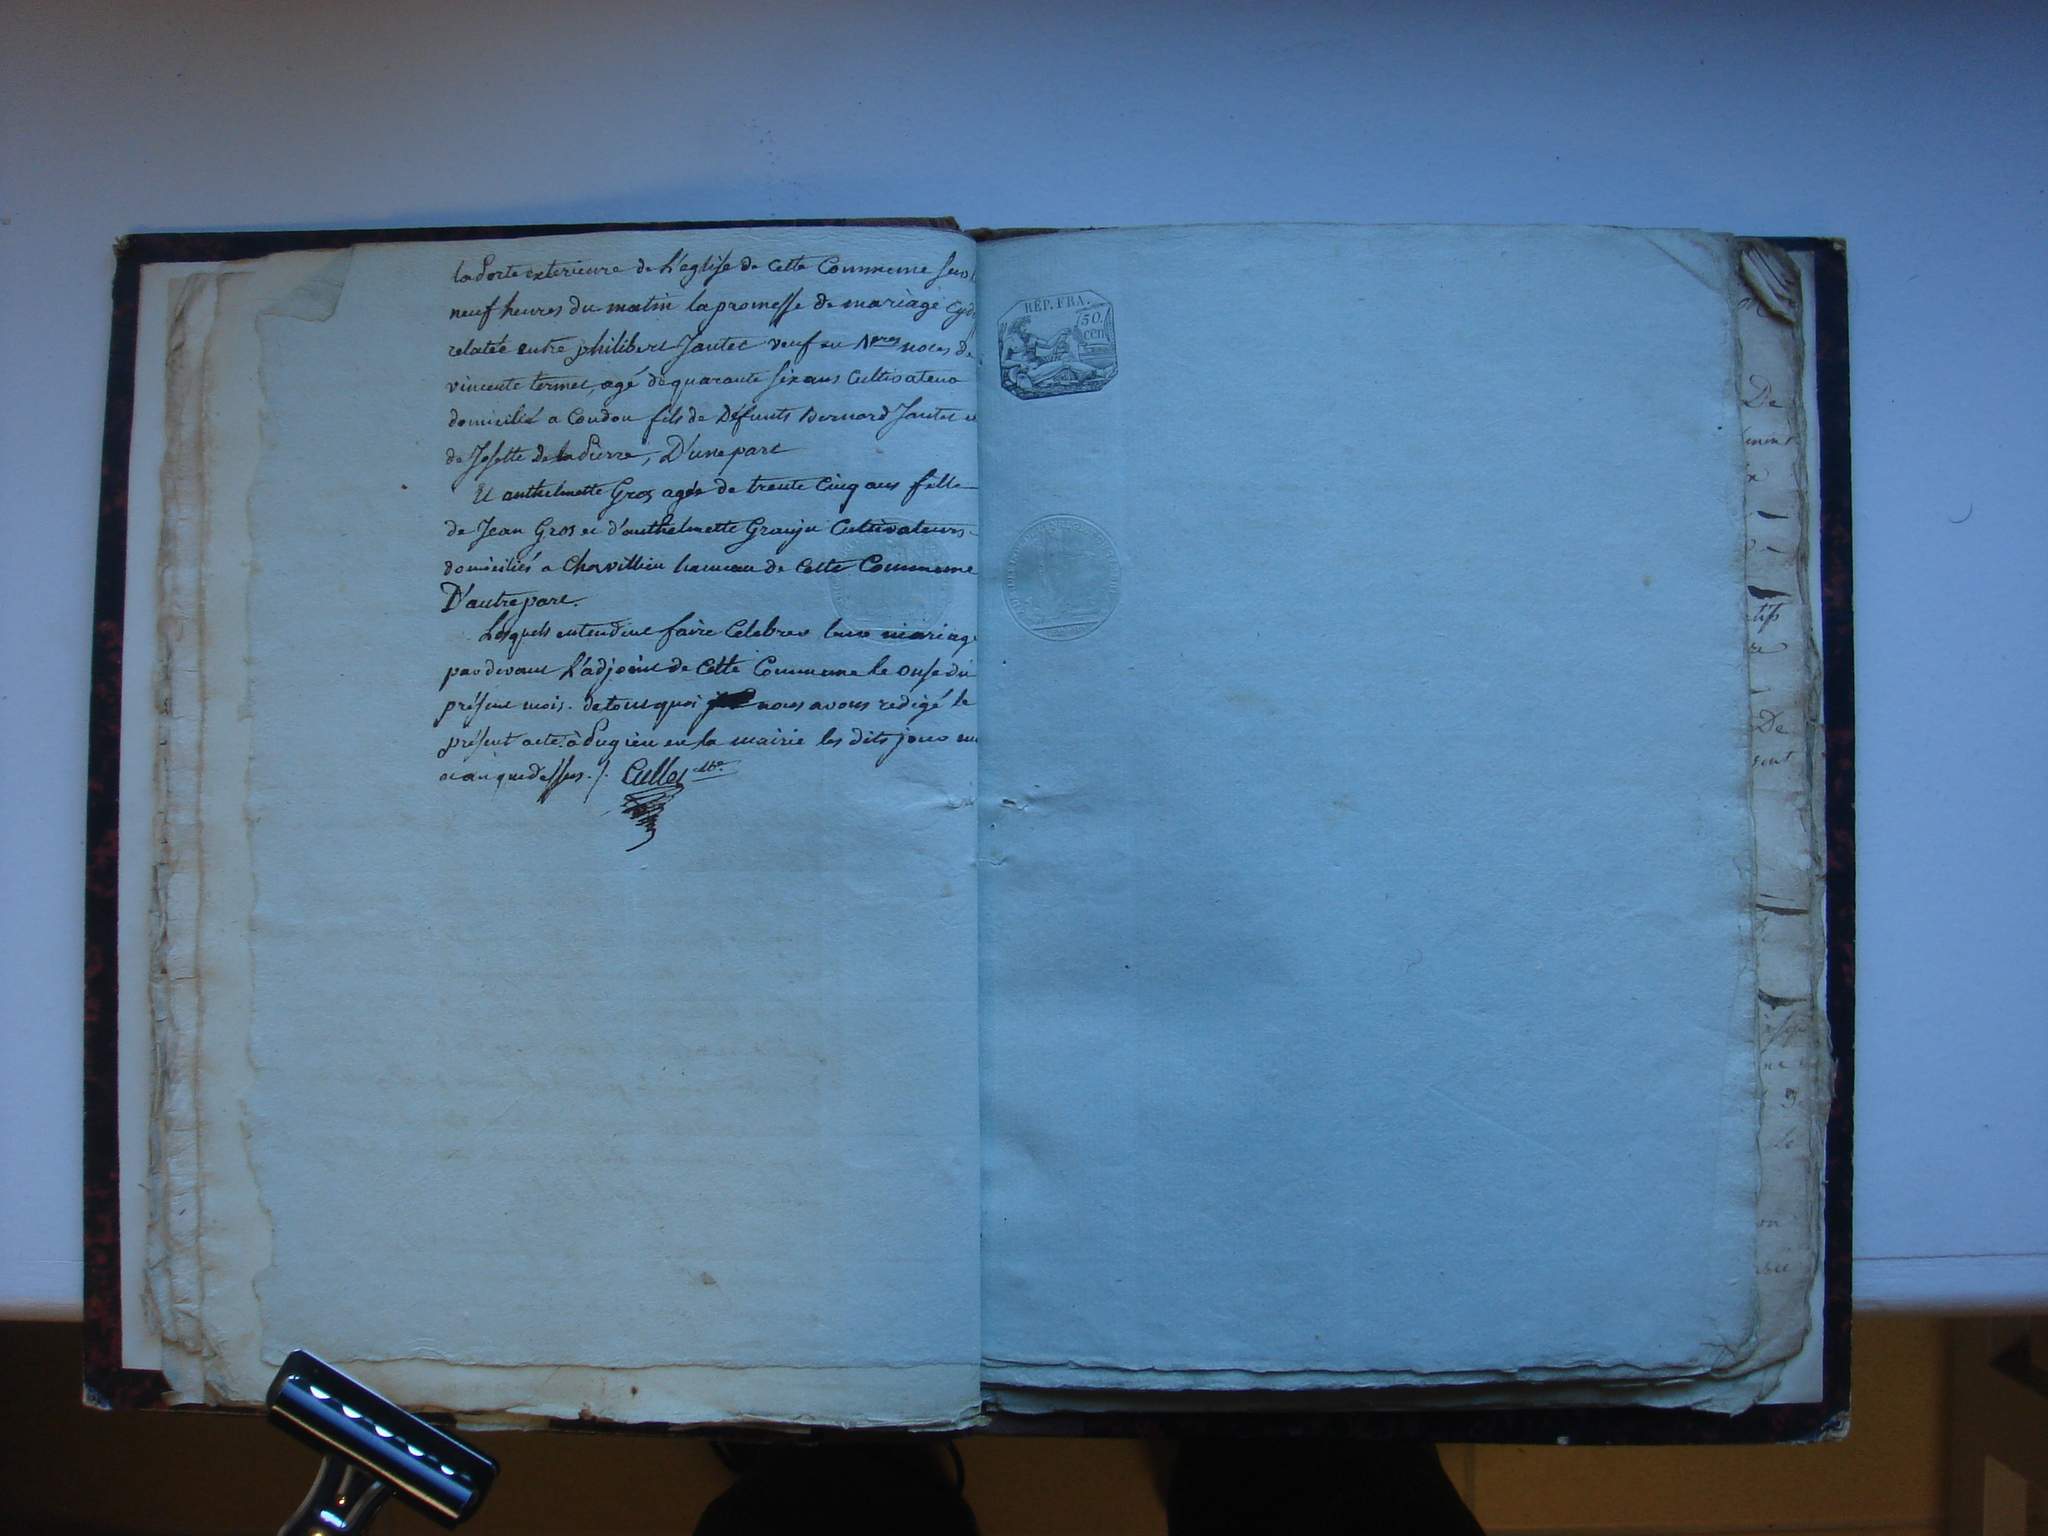 la Porte exterieure de L'eglise de cette Commune
neuf heures du matin la promesse de mariage cyd
relatée entre philibert Jantet veuf en 1eres noces de
vincente termet, agé de quarante six ans Cultivateur
domicilié a Coudon fils de Défunts Bernard Jantet et
de Josette De la Pierre, D'une part
Et anthelmette Gros agée de trente Cinq ans fille
de Jean Gros et d'anthelmette Granju Cultivateurs
domiciliés a Chavillieu hameau de Cette Commune
D'autre part.
Lesquels entendent faire Celebrer leur mariage
par devant L'adjoint de Cette Commune le onse du
présent mois. de tout quoi nous avons redigé le
présent acte à Pugieu en la mairie les dits jour mois
et an que dessus ./. Cullet
RÉP. FRA.
50.
cen
De
De